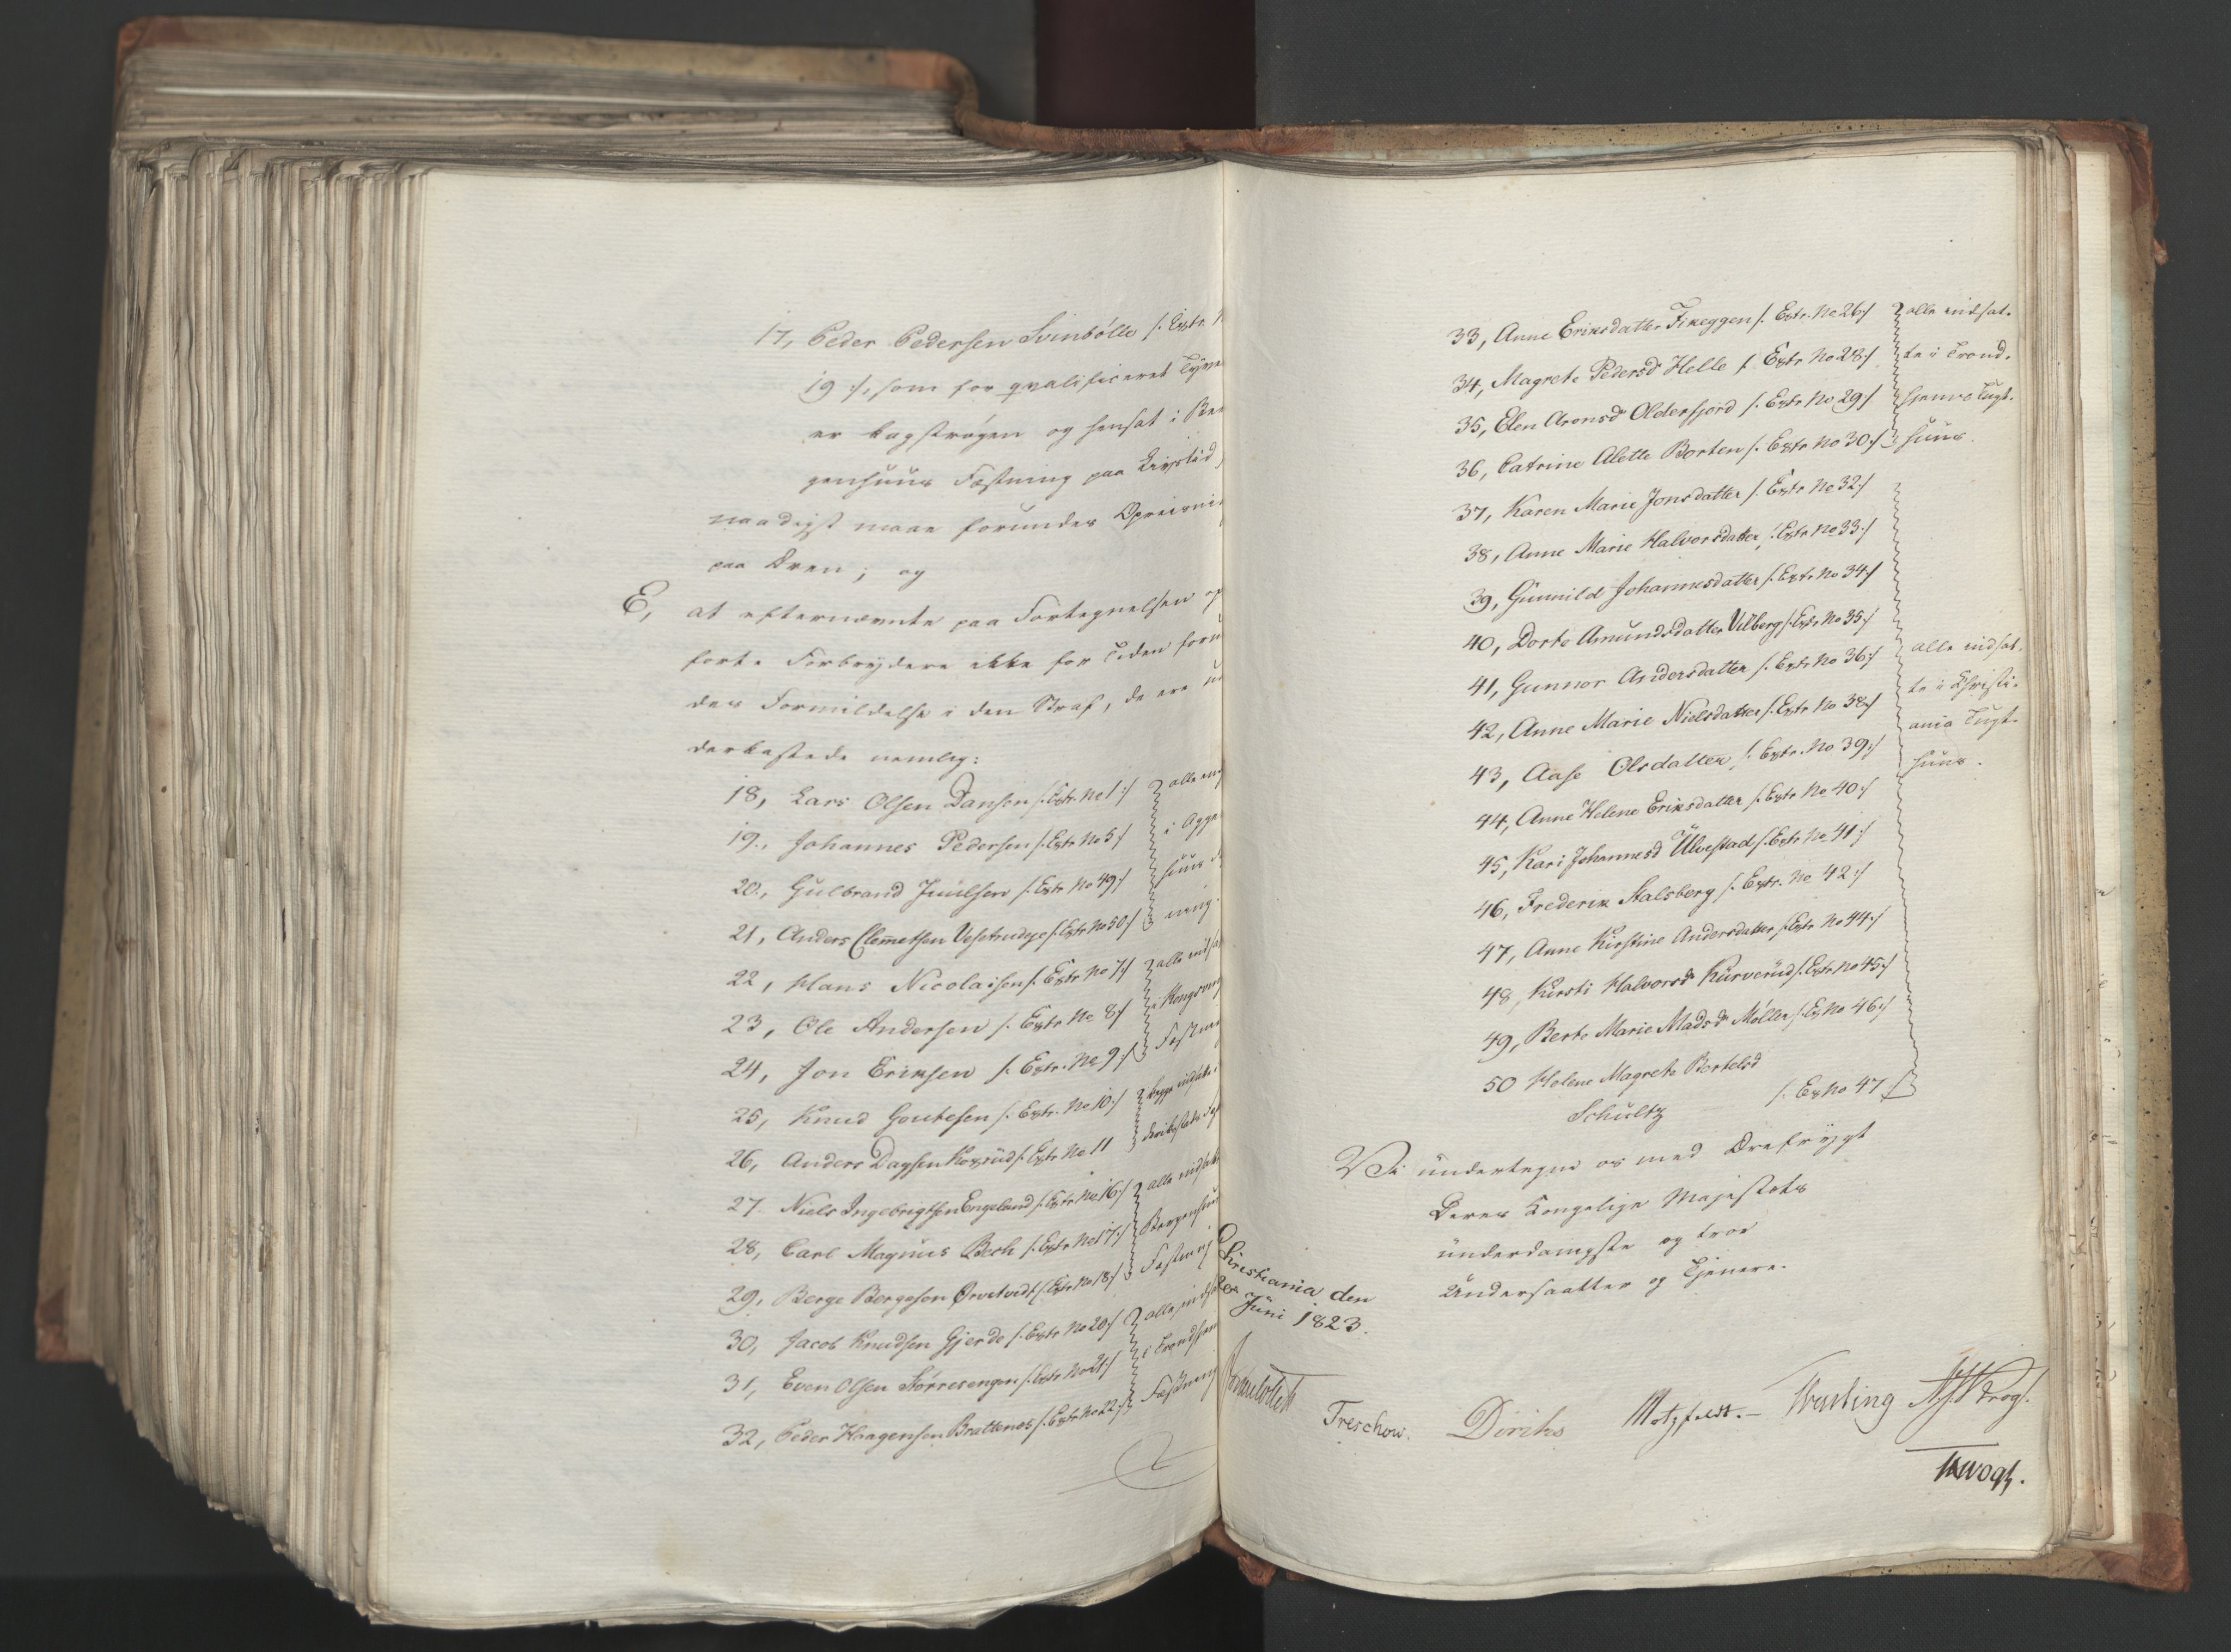 17, Peder Pedersen Svinbölle /: Extr. N
19 :/, som for qvalificeret Tyve
er kagstrøgen og hensat i Ber
genhuus Fæstning paa Livstid,
naadigst maae forundes Opreisni
paa Æren; og
E, at efternævnte paa Fortegnelsen op
förte Forbrydere ikke for Tiden forun
des Formildelse i den Straf, de ere un
derkastede nemlig:
18, Lars Olsen Dansen /: Extr. No 1 :/
19, Johannes Pedersen /: Extr. No 5 :/
20, Gulbrand Juulsen /: Extr No 49 :/
21, Anders Clemetsen Vesetrudeje /: Extr No 50 :/
alle in
i Agge
huus
ning.
22, Hans Nicolaisen /: Extr No 7 :/
23, Ole Andersen /: Extr No 8 :/
24, Jon Eriksen /: Extr. No 9 :/
alle indsa
i Kongsving
Fæstni
25, Knud Goutesen /: Extr. No 10 :/
26, Anders Dagsen Kogsrüd /: Extr No 11
begge indsatte i
deriksstads Fæst
27. Niels Ingebrigtsen Engeland /: Extr No 16 :/
28, Carl Magnus Bech /: Extr No 17 :/
29, Berge Bergeson Örvetvidt /: Extr No 18 :/
alle indsatte
Bergenhuu
Fæstning
30, Jacob Knudsen Gjerde /: Extr No 20 :/
31, Even Olsen Störresengen /: Extr No 21 :/
32, Peder Haagensen Brattenes /: Extr No 22 :/
alle indsat
i Trondhjem
Fæstning
33, Anne Eriksdatter Fikeggen /: Extr. No 26 :/
34, Magrete Pedersdr Helle /: Extr No 28 :/
35, Elen Aronsdr Olderfjord /: Extr No 29 /
36, Catrine Alette Borten /: Extr No 30 :/
alle indsat-
te i Trond-
hjems Tugt-
huus.
37, Karen Marie Jonsdatter /: Extr No 32 :/
38, Anne Marie Halvorsdatter /: Extr No 33 :/
39, Gunnild Johannesdatter /: Extr No 34 :/
40, Dorte Amundsdatter Vilberg /: Extr No 35 :/
41, Gunnor Andersdatter /: Extr No 36 :/
42, Anne Marie Nielsdatter /: Extr No 38 :/
43, Aase Olsdatter /: Extr. No 39 :/
44, Anne Helene Eriksdatter /: Extr No 40 :/
45, Kari Johannesd Ulvestad /: Extr No 41 :/
46, Frederik Stalsberg /: Extr. No 42 :/
47, Anne Kirstine Andersdatter /: Extr No 44 :/
48, Kirsti Halvorsdr Kurverüd /: Extr No 45 :/
49, Berte Marie Madsdr Møller /: Ex No 46 :/
50 Helene Magrete Bertelsd
Schultz /: Ex No 47 :/
alle indsat-
te i Christi-
ania Tugt-
huus.
Vi undertegne os med Ærefrygt
Deres Kongelige Majestets
underdanigste og troe
Undersaatter og Tjenere.
Christiania den
Juni 1823.
Treschow.
Diriks
Motzfeldt.